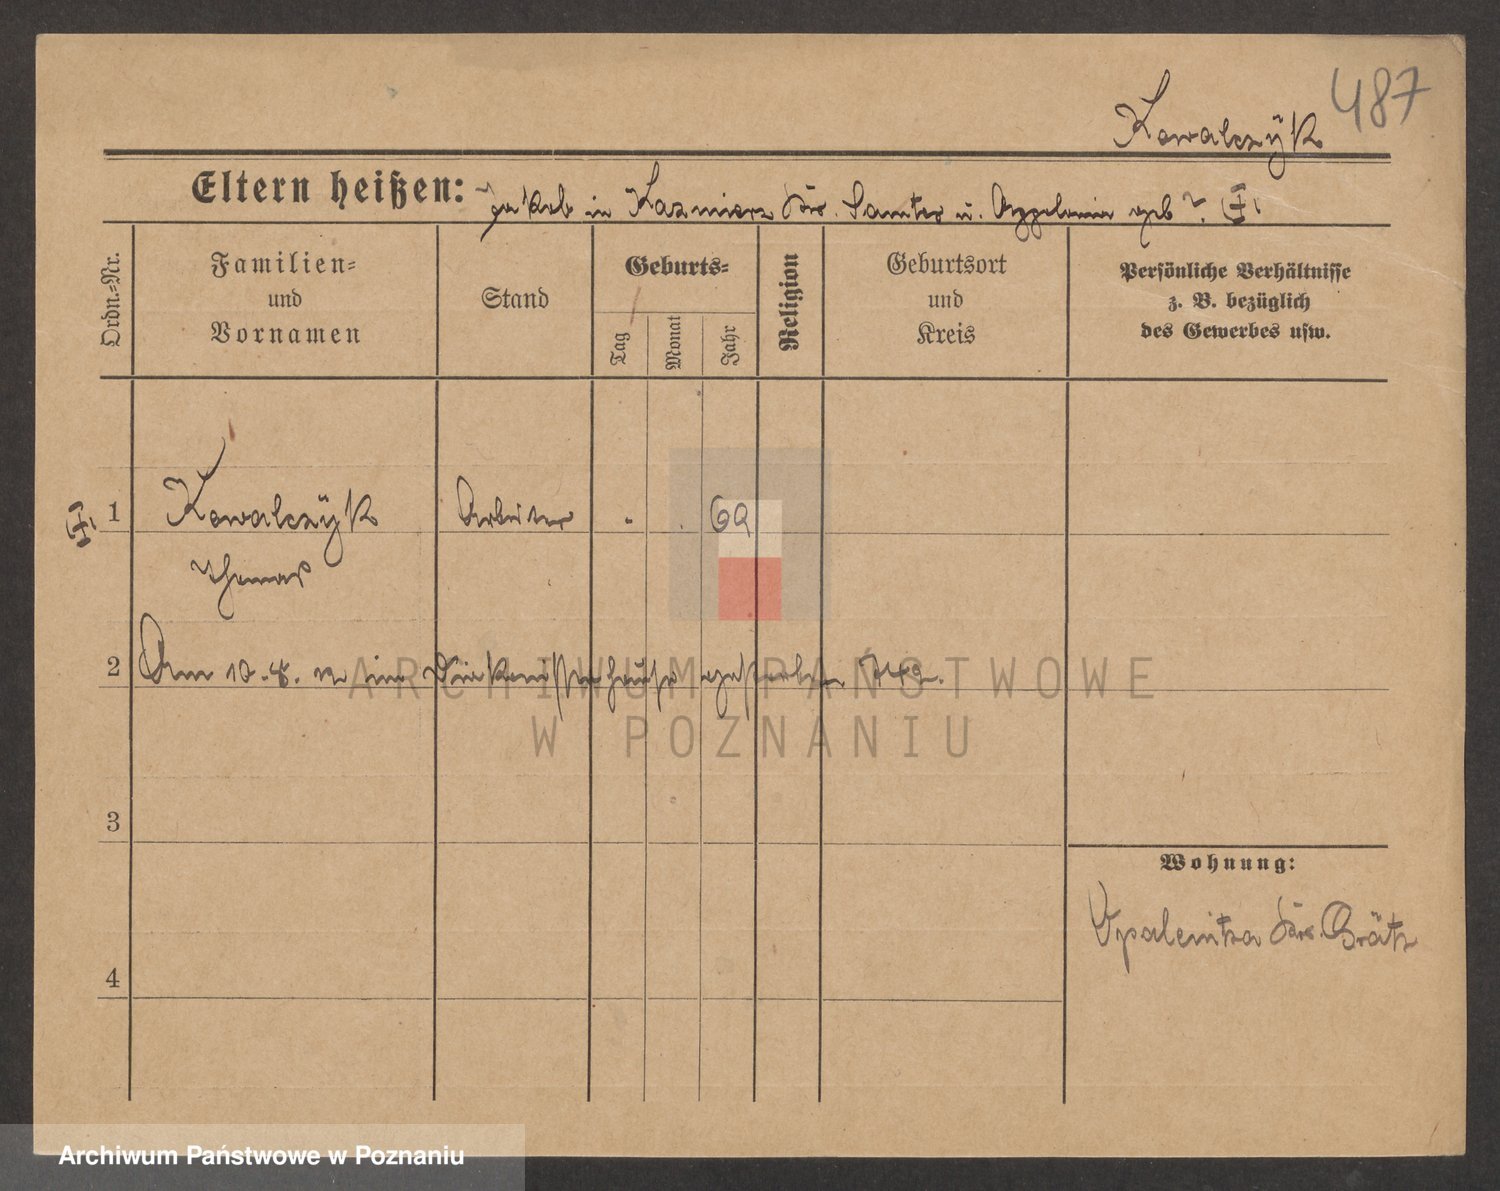 487
Kowalczÿk
Eltern heißen: Jakob in Kazmierz Krs. Samter u. Appolonia geb ?
Ordn.=Nr.
Familien=
und
Vornamen
Stand
Geburts=
Tag
Monat
Jahr
Religion
Geburtsort
und
Kreis
Persönliche Verhältnisse
z. B. bezüglich
des Gewerbes usw.
1 Kowalczÿk Arbeiter 69
Thomas
2 Am 10.8. im Diakonissenhause gestorben
3
Wohnung:
Opalenitza Krs. Grätz
4
ARCHIWUM PAŃSTWOWE
W POZNANIU
Archiwum Państwowe w Poznaniu